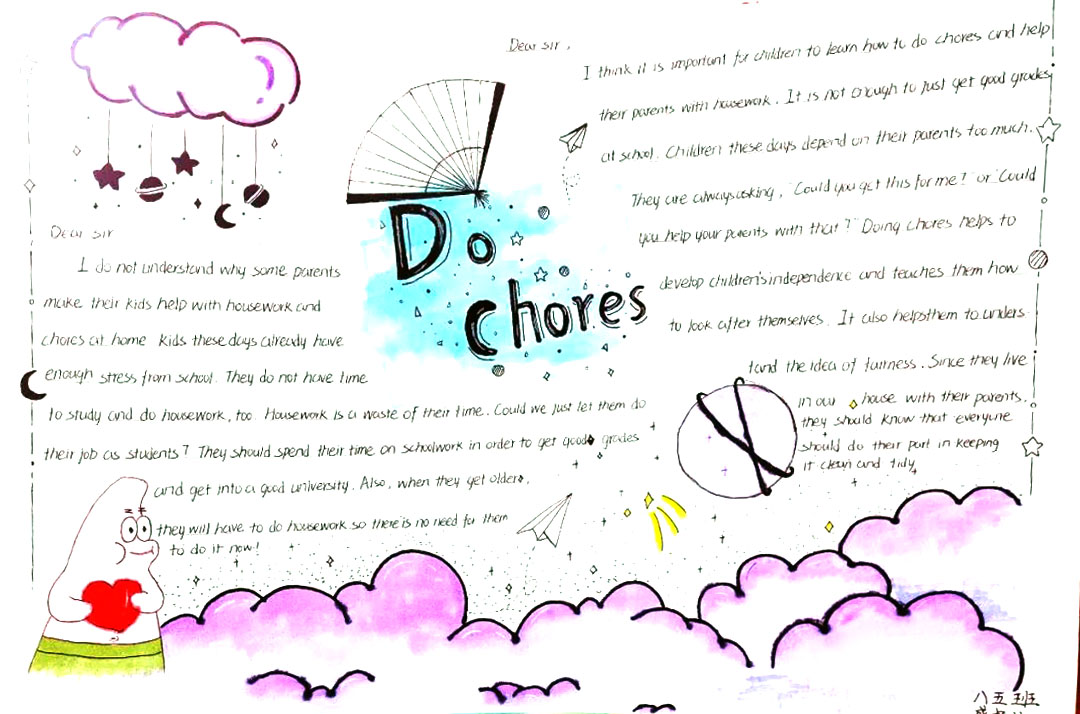 Dear sir
I do not understand why some parents
make their kids help with housework and
chores at home kids these days already have
enough stress from school. They do not have time
to study and do housework, too. Housework is a waste of their time. Could we just let them do
their job as students? They should spend their time on schoolwork in order to get good grades
and get into a good university. Also, when they get older,
they will have to do housework so there is no need for them
to do it now!
Do
chores
Dear sir,
I think it is important for children to learn how to do chores and help
their parents with housework. It is not enough to just get good grades
at school. Children these days depend on their parents too much.
They are always asking, "Could you get this for me?" or "Could
you help your parents with that?" Doing chores helps to
develop children's independence and teaches them how
to look after themselves. It also helps them to unders-
tand the idea of fairness. Since they live
in our house with their parents.
they should know that everyone
should do their part in keeping
it clean and tidy,
八五班